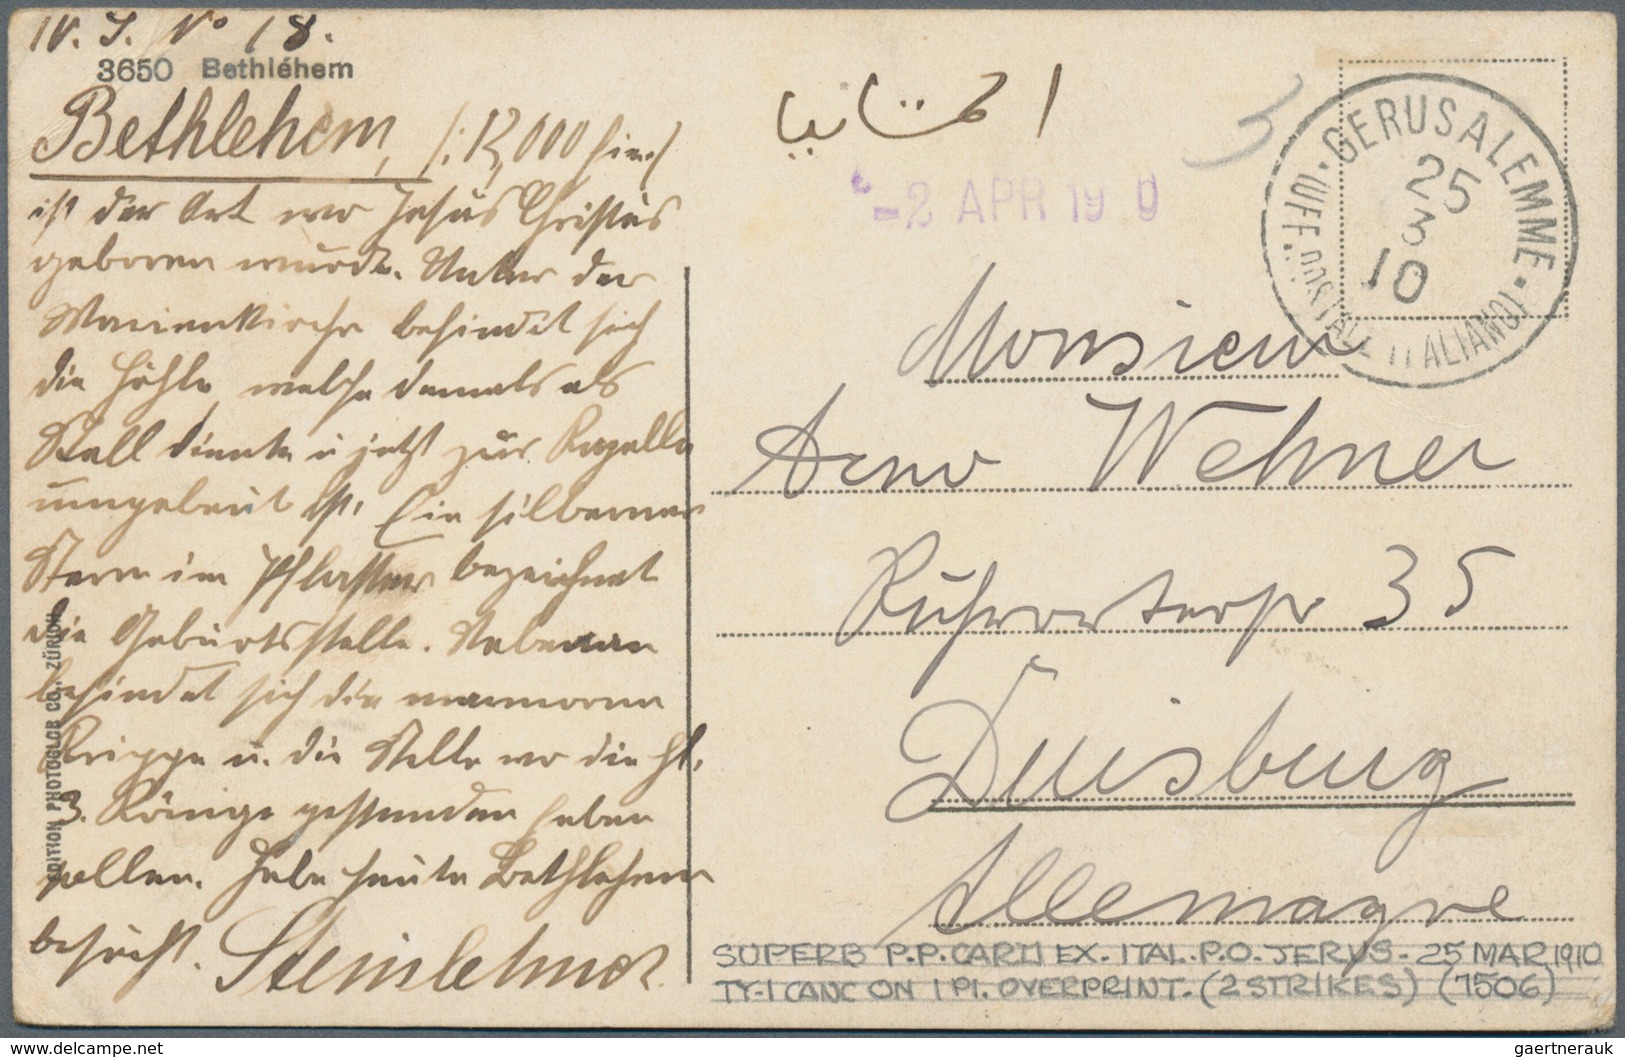 IV. S. No 18.
3650 Bethléhem
Bethlehem, /: 12,000 Einw/
ist der Ort wo Jesus Christus
geboren wurde. Unter der
Marienkirche befindet sich
die Höhle, welche damals als
Stall diente u jetzt zur Kapelle
umgebaut ist. Ein silberner
Stern im Pflaster bezeichnet
die Geburtsstelle. Nebenan
befindet sich die marmorne
Krippe u. die Stelle wo die hl.
3. Könige gestanden haben
sollen. Habe heute Bethlehem
besucht.
EDITION PHOTOGLOB CO., ZÜRICH
المانيا
3
-2 APR 19 0
GERUSALEMME
25
3
10
(UFF. POSTALE ITALIANO)
Monsieur
Arno Wehner
Ruhrorterstr 35
Duisburg
Allemagne
SUPERB P.P. CARD EX. ITAL. P.O. JERUS. 25 MAR 1910
TY-1 CANC ON 1 PI. OVERPRINT. (2 STRIKES) (7506)
gaertnerauk